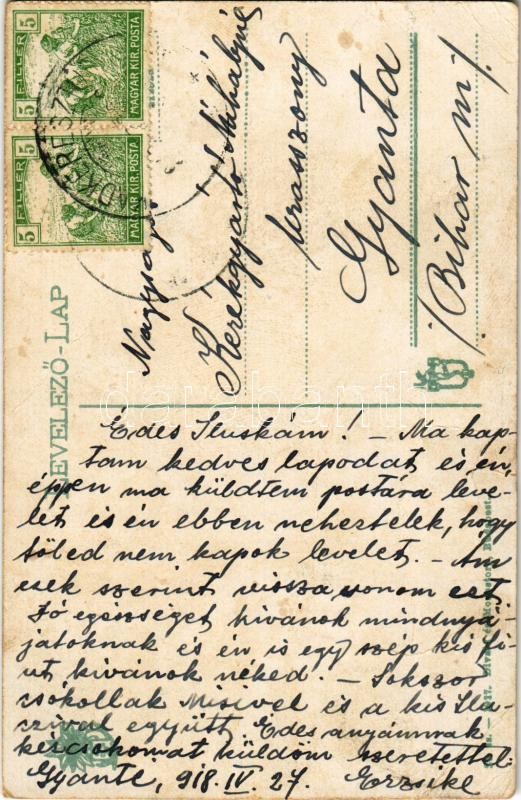 LEVELEZŐ-LAP
5 FILLÉR 5
MAGYAR KIR. POSTA
5 FILLÉR 5
MAGYAR KIR. POSTA
Nagyságos
Kerékgyártó Mihályné
úrasszony
Gyanta
/Bihar m/.
Édes Iluskám! – Ma kap-
tam kedves lapodat és én,
éppen ma küldtem postára leve-
let és én ebben nehezteltek, hogy
tőled nem kapok levelet. –
esek szerint vissza vonom ezt.
Jó egészséget kivánok mindnyá-
jatoknak és én is egy szép kis fi-
ut kivánok néked. – Sokszor
csókollak Misivel és a kis Ilu-
czival együtt. Édes anyámnak
kézcsókomat küldöm szeretettel:
Gyante, 918. IV. 27. Erzsike
darabanth